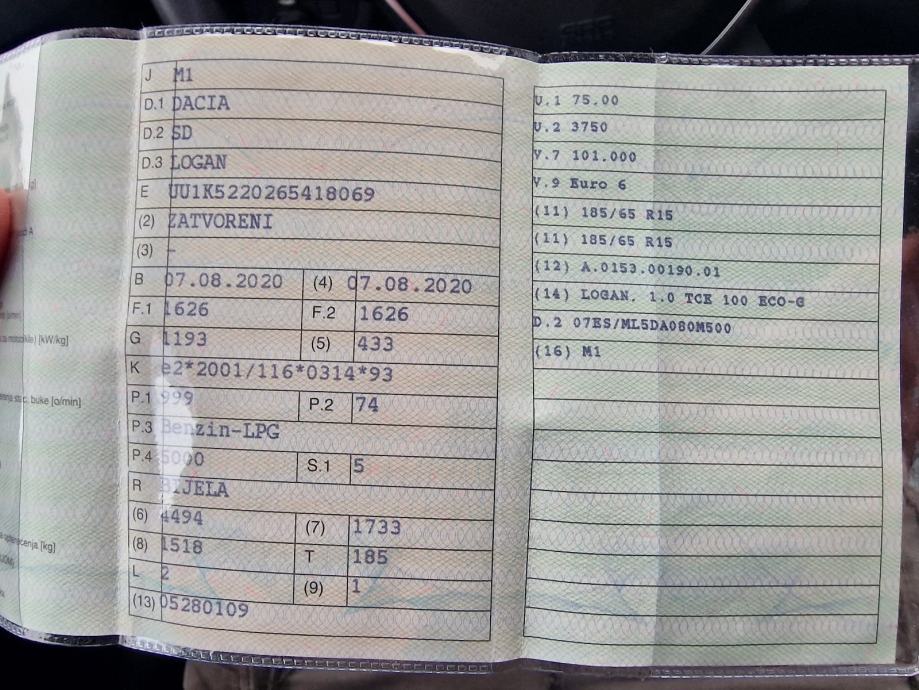 g]
A
(min)
za motocikle) [kW/kg]
stac. buke [o/min]
[kg]
J M1
D.1 DACIA
D.2 SD
D.3 LOGAN
E UU1K5220265418069
(2) ZATVORENI
(3) -
B 07.08.2020 (4) 07.08.2020
F.1 1626 F.2 1626
G 1193 (5) 433
K e2*2001/116*0314*93
P.1 999 P.2 74
P.3 Benzin-LPG
P.4 5000 S.1 5
R BIJELA
(6) 4494 (7) 1733
(8) 1518 T 185
L 2 (9) 1
(13) 05280109
U.1 75.00
U.2 3750
V.7 101.000
V.9 Euro 6
(11) 185/65 R15
(11) 185/65 R15
(12) A.0153.00190.01
(14) LOGAN. 1.0 TCE 100 ECO-G
D.2 07ES/ML5DA080M500
(16) M1